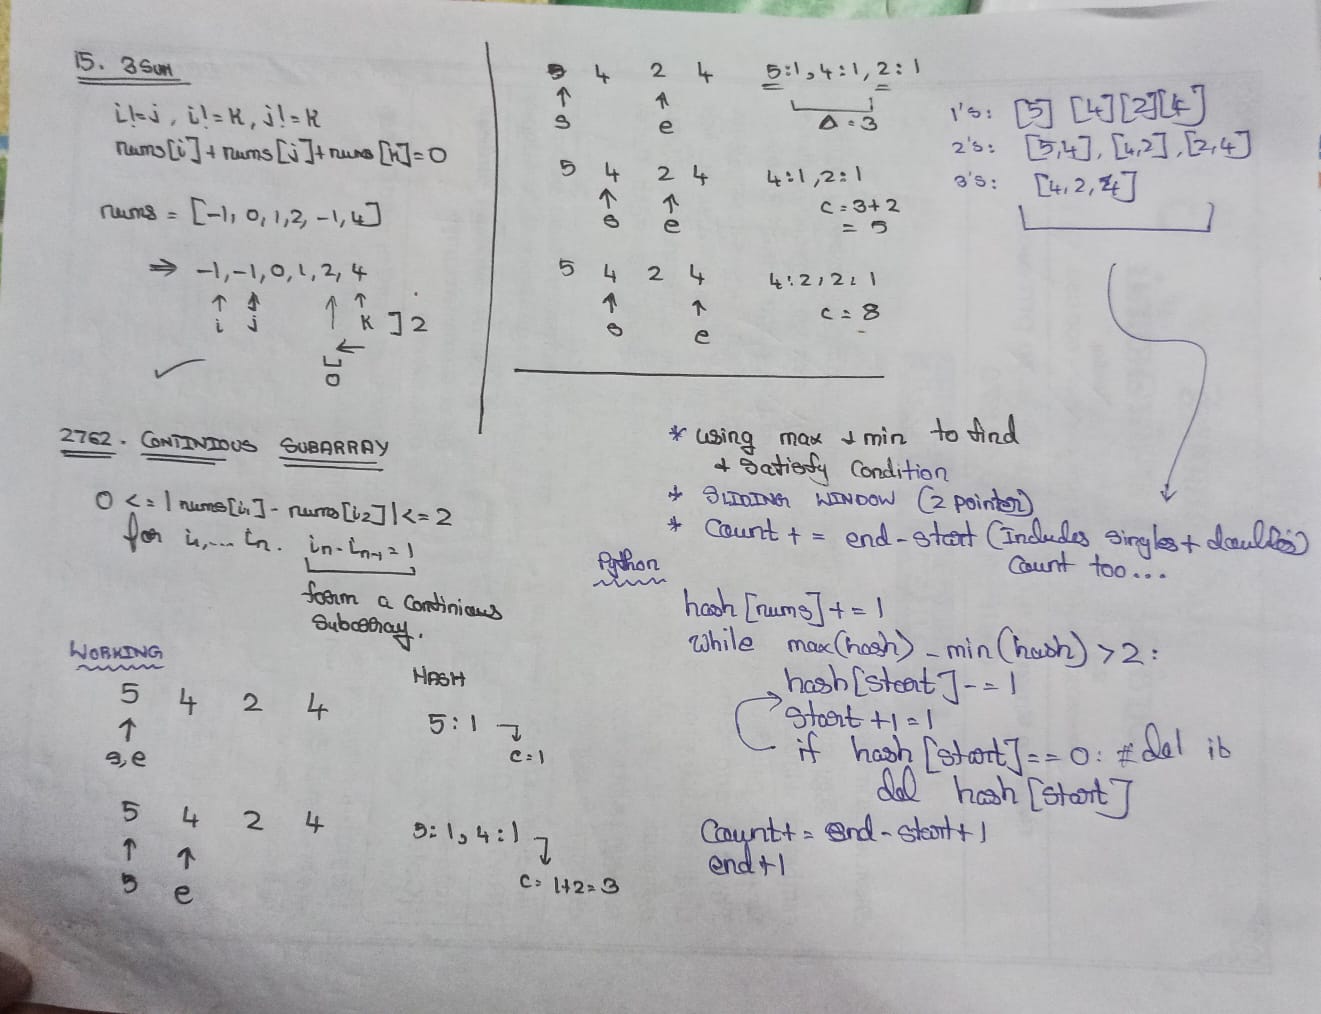 15. 3SUM
i!=j, i!=K, j!=K
nums[i]+nums[j]+nums[K]=0
nums = [-1, 0, 1, 2, -1, 4]
⇒ -1, -1, 0, 1, 2, 4
↑ ↑ ↑ ↑
i j K ] 2
←
5 4 2 4 5:1, 4:1, 2:1
↑ ↑
s e Δ=3
5 4 2 4 4:1, 2:1
↑ ↑ C=3+2
s e = 5
5 4 2 4 4:2, 2:1
↑ ↑ C=8
s e
1's: [5] [4] [2] [4]
2's: [5,4], [4,2], [2,4]
3's: [4,2,4]
2762. CONTINIOUS SUBARRAY
0 <= |nums[i₁] - nums[i₂]| <= 2
for i₁,... in. in-in-1=1
form a continious
subarray.
WORKING
HASH
5 4 2 4 5:1
↑ C=1
s,e
5 4 2 4 5:1, 4:1
↑ ↑
s e C= 1+2=3
* using max & min to find
& satisfy condition
* SLIDING WINDOW (2 pointer)
* Count + = end-start (includes singles + doubles)
Count too...
Python
hash[nums]+=1
while max(hash) - min(hash) >2:
hash[start]-=1
start +1=1
if hash[start]==0: # del it
del hash[start]
Count+= end-start+1
end+1